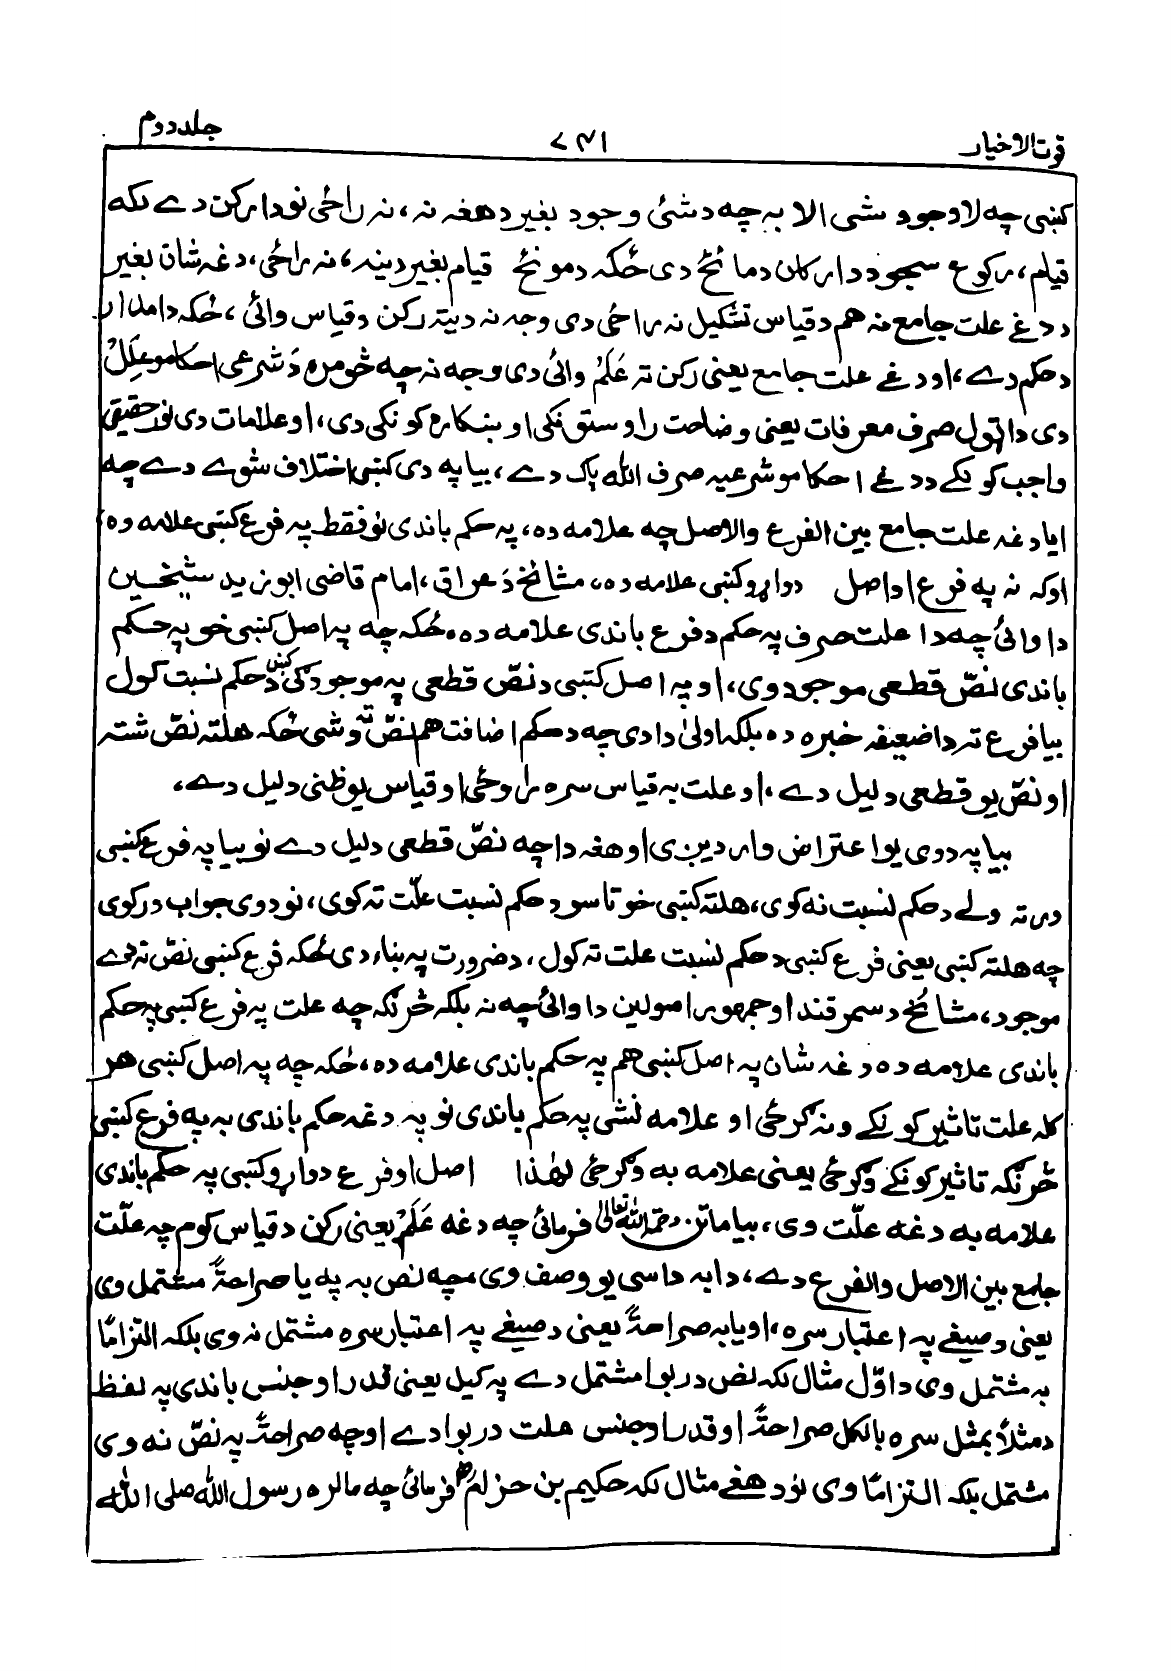 قوت الاخیار ۷۳۱ جلد دوم
کښی چه لا وجود شی الا به چه د شئ وجود بغیر د هغه نه، نه راځی نو دا رکن دے لکه
قیام، رکوع سجود دا ارکان د مانځه دی ځکه د مونځ قیام بغیر دینه، نه راځی، دغه شان بغیر
د دغے علت جامع نه هم د قیاس تشکیل نه راځی دی وجه نه دیته رکن د قیاس وائی، ځکه دا مدار
د حکم دے، او دغے علت جامع یعنی رکن ته عَلَمْ وائی دی وجه نه چه څومره دَ شرعی احکامو عِلَلْ
دی دا ټول صرف معرفات یعنی وضاحت راوستونکی او ښکاره کونکی دی، او علامات دی نور حقیقی
واجب کونکے د دغے احکامو شرعیه صرف الله پاک دے، بیا په دی کښی اختلاف شوے دے چه
ایا دغه علت جامع بین الفرع والاصل چه علامه ده، په حکم باندی نو فقط په فرع کښی علامه وه
اوکه نه په فرع او اصل دواړو کښی علامه ده، مشائخ دَ عراق، امام قاضی ابوزید شیخین
دا وائی چه دا علت صرف په حکم د فرع باندی علامه ده، ځکه چه په اصل کښی خو په حکم
باندی نصّ قطعی موجود وی، او په اصل کښی د نصّ قطعی په موجودگی کښ د حکم نسبت کول
بیا فرع ته دا ضعیفه خبره ده بلکه اولیٰ دا دی چه د حکم اضافت هم نصّ ته وشی ځکه هلته نصّ شته
او نصّ یو قطعی دلیل دے، او علت به قیاس سره راوځی او قیاس یو ظنی دلیل دے،
بیا په دوی یو اعتراض واردیږی او هغه دا چه نصّ قطعی دلیل دے نو بیا په فرع کښی
دی ته ولے د حکم نسبت نه کوی، هلته کښی خو تاسو د حکم نسبت علّت ته کوی، نو دوی جواب ورکوی
چه هلته کښی یعنی فرع کښی د حکم نسبت علت ته کول، د ضرورت په بناء دی ځکه فرع کښی نصّ نه دے
موجود، مشائخ د سمرقند او جمهور اصولین دا وائی چه نه بلکه څرنگه چه علت په فرع کښی په حکم
باندی علامه ده دغه شان په اصل کښی هم په حکم باندی علامه ده، ځکه چه په اصل کښی هر
کله علت تاثیر کونکے ونه گرځی او علامه نشی په حکم باندی نو په دغه حکم باندی به په فرع کښی
څرنگه تاثیر کونکے وگرځی یعنی علامه به وگرځی لهٰذا اصل او فرع دواړو کښی په حکم باندی
علامه به دغه علّت وی، بیا ماتن رحمه الله تعالیٰ فرمائی چه دغه عَلَمْ یعنی رکن د قیاس کوم چه علّت
جامع بین الاصل والفرع دے، دا به داسی یو وصف وی، چه نص به په یا صراحةً مشتمل وی
یعنی د صیغے په اعتبار سره، او یا به صراحةً یعنی د صیغے په اعتبار سره مشتمل نه وی بلکه التزامًا
به مشتمل وی د اوّل مثال لکه نص د ربوا مشتمل دے په کیل یعنی قدر او جنس باندی په لفظ
د مثلاً بمثل سره بالکل صراحةً او قدر او جنس علت د ربوا دے او چه صراحةً په نصّ نه وی
مشتمل بلکه التزامًا وی نو د هغے مثال لکه حکیم بن حزامؓ فرمائی چه مالره رسول الله صلی الله